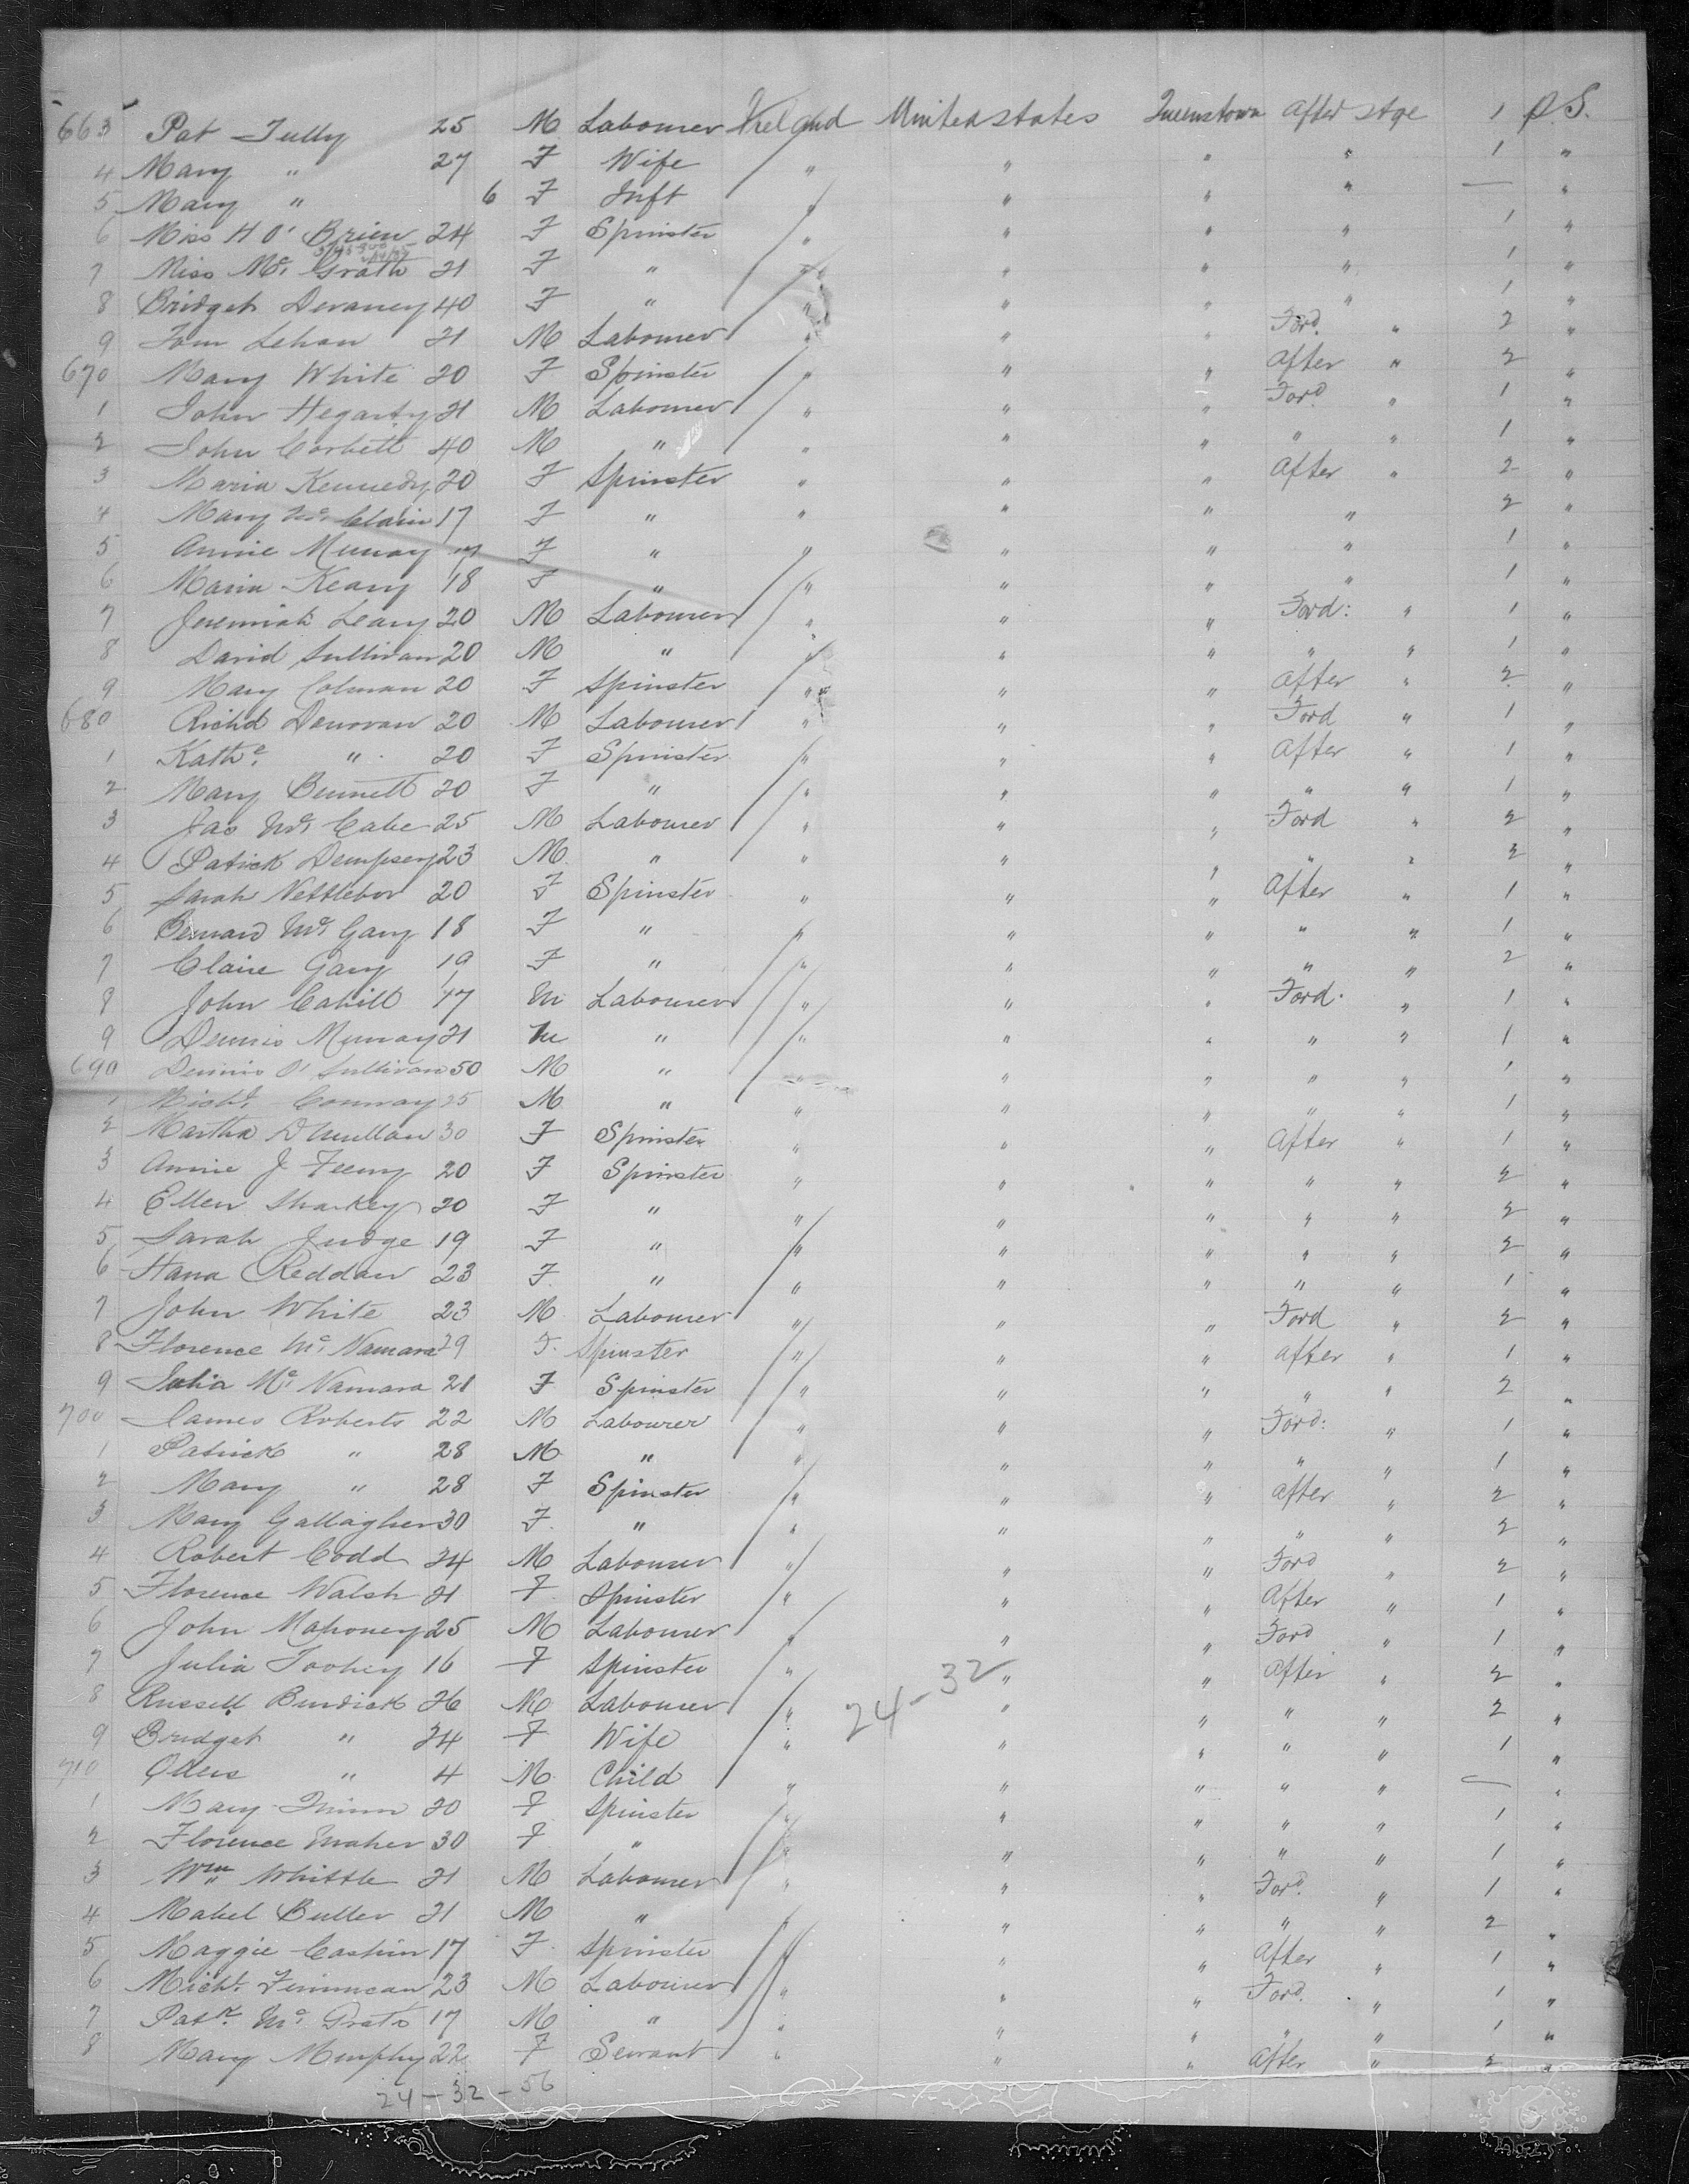 663 Pat Tully 25 M Labourer Ireland United states Queenstown After stge 1 P.S.
4 Mary " 27 F Wife " " " " 1 "
5 Mary " 6 F Inft " " " " — "
6 Miss H O' Brien 24 F Spinster " " " " 1 "
7 Miss Mc Grath 21 F " " " " " 1 "
8 Bridget Devaney 40 F " " " " " 1 "
9 Tom Lehan 21 M Labourer " " " Ford. " 2 "
670 Mary White 20 F Spinster " " " After " 2 "
1 John Hegarty 21 M Labourer " " " Ford " 1 "
2 John Corbett 40 M " " " " " " 1 "
3 Maria Kennedy 20 F Spinster " " " After " 2 "
4 Mary Mc Clain 17 F " " " " " 2 "
5 Annie Murray F " " " " " 1 "
6 Maria Keary 18 F " " " " " 1 "
7 Jeremiah Leary 20 M Labourer " " " Ford: " 1 "
8 David Sullivan 20 M " " " " " " 1 "
9 Mary Colman 20 F Spinster " " " After " 2 "
680 Richd Donovan 20 M Labourer " " " Ford " 1 "
1 Kathe. " 20 F Spinster " " " After " 1 "
2 Mary Bennett 20 F " " " " " " 1 "
3 Jas Mc Cabe 25 M Labourer " " " Ford " 2 "
4 Patick Dempsey 23 M " " " " " " 2 "
5 Sarah 20 F Spinster " " " After " 1 "
6 Mc Gary 18 F " " " " " " 1 "
7 Claire Gary 19 F " " " " " " 2 "
8 John Cahill 17 M Labourer " " " Ford. " 1 "
9 Dennis Murray 21 M " " " " " " 1 "
690 Dennis O' Sullivan 50 M " " " " " " 1 "
1 Michl. Conway 25 M " " " " " " 1 "
2 Martha 30 F Spinster " " " After " 1 "
3 Annie J Feeny 20 F Spinster " " " " " 2 "
4 Ellen Sharkey 20 F " " " " " " 2 "
5 Sarah Judge 19 F " " " " " " 2 "
6 Hana Reddan 23 F " " " " " " 1 "
7 John White 23 M Labourer " " " Ford " 2 "
8 Florence Mc Namara 29 F. Spinster " " " After " 1 "
9 Julia Mc Namara 21 F Spinster " " " " " 2 "
700 James Roberts 22 M Labourer " " " Ford: " 1 "
1 Patrick " 28 M " " " " " " 1 "
2 Mary " 28 F Spinster " " " After " 2 "
3 Mary Gallagher 30 F. " " " " " " 2 "
4 Robert Codd 24 M Labourer " " " Ford " 2 "
5 Florence Walsh 21 F Spinster " " " After " 1 "
6 John Mahoney 25 M Labourer " " " Ford " 1 "
7 Julia Toohey 16 F Spinster " " " After " 2 "
24-32
8 Russell Burdick 26 M Labourer " " " " " 2 "
9 Bridget " 24 F Wife " " " " " 1 "
710 " 4 M Child " " " " " — "
1 Mary 20 F Spinster " " " " " 1 "
2 Florence Maher 30 F " " " " " " 1 "
3 Wm Whittle 21 M Labourer " " " Ford. " 1 "
4 Mabel Butler 21 M " " " " " " 2 "
5 Maggie Cashin 17 F Spinster " " " After " 1 "
6 Michl. Finnucan 23 M Labourer " " " Ford. " 1 "
7 Patk. Mc Grath 17 M " " " " " " 1 "
8 Mary Murphy 22 F Servant " " " After " 2 "
24-32-56